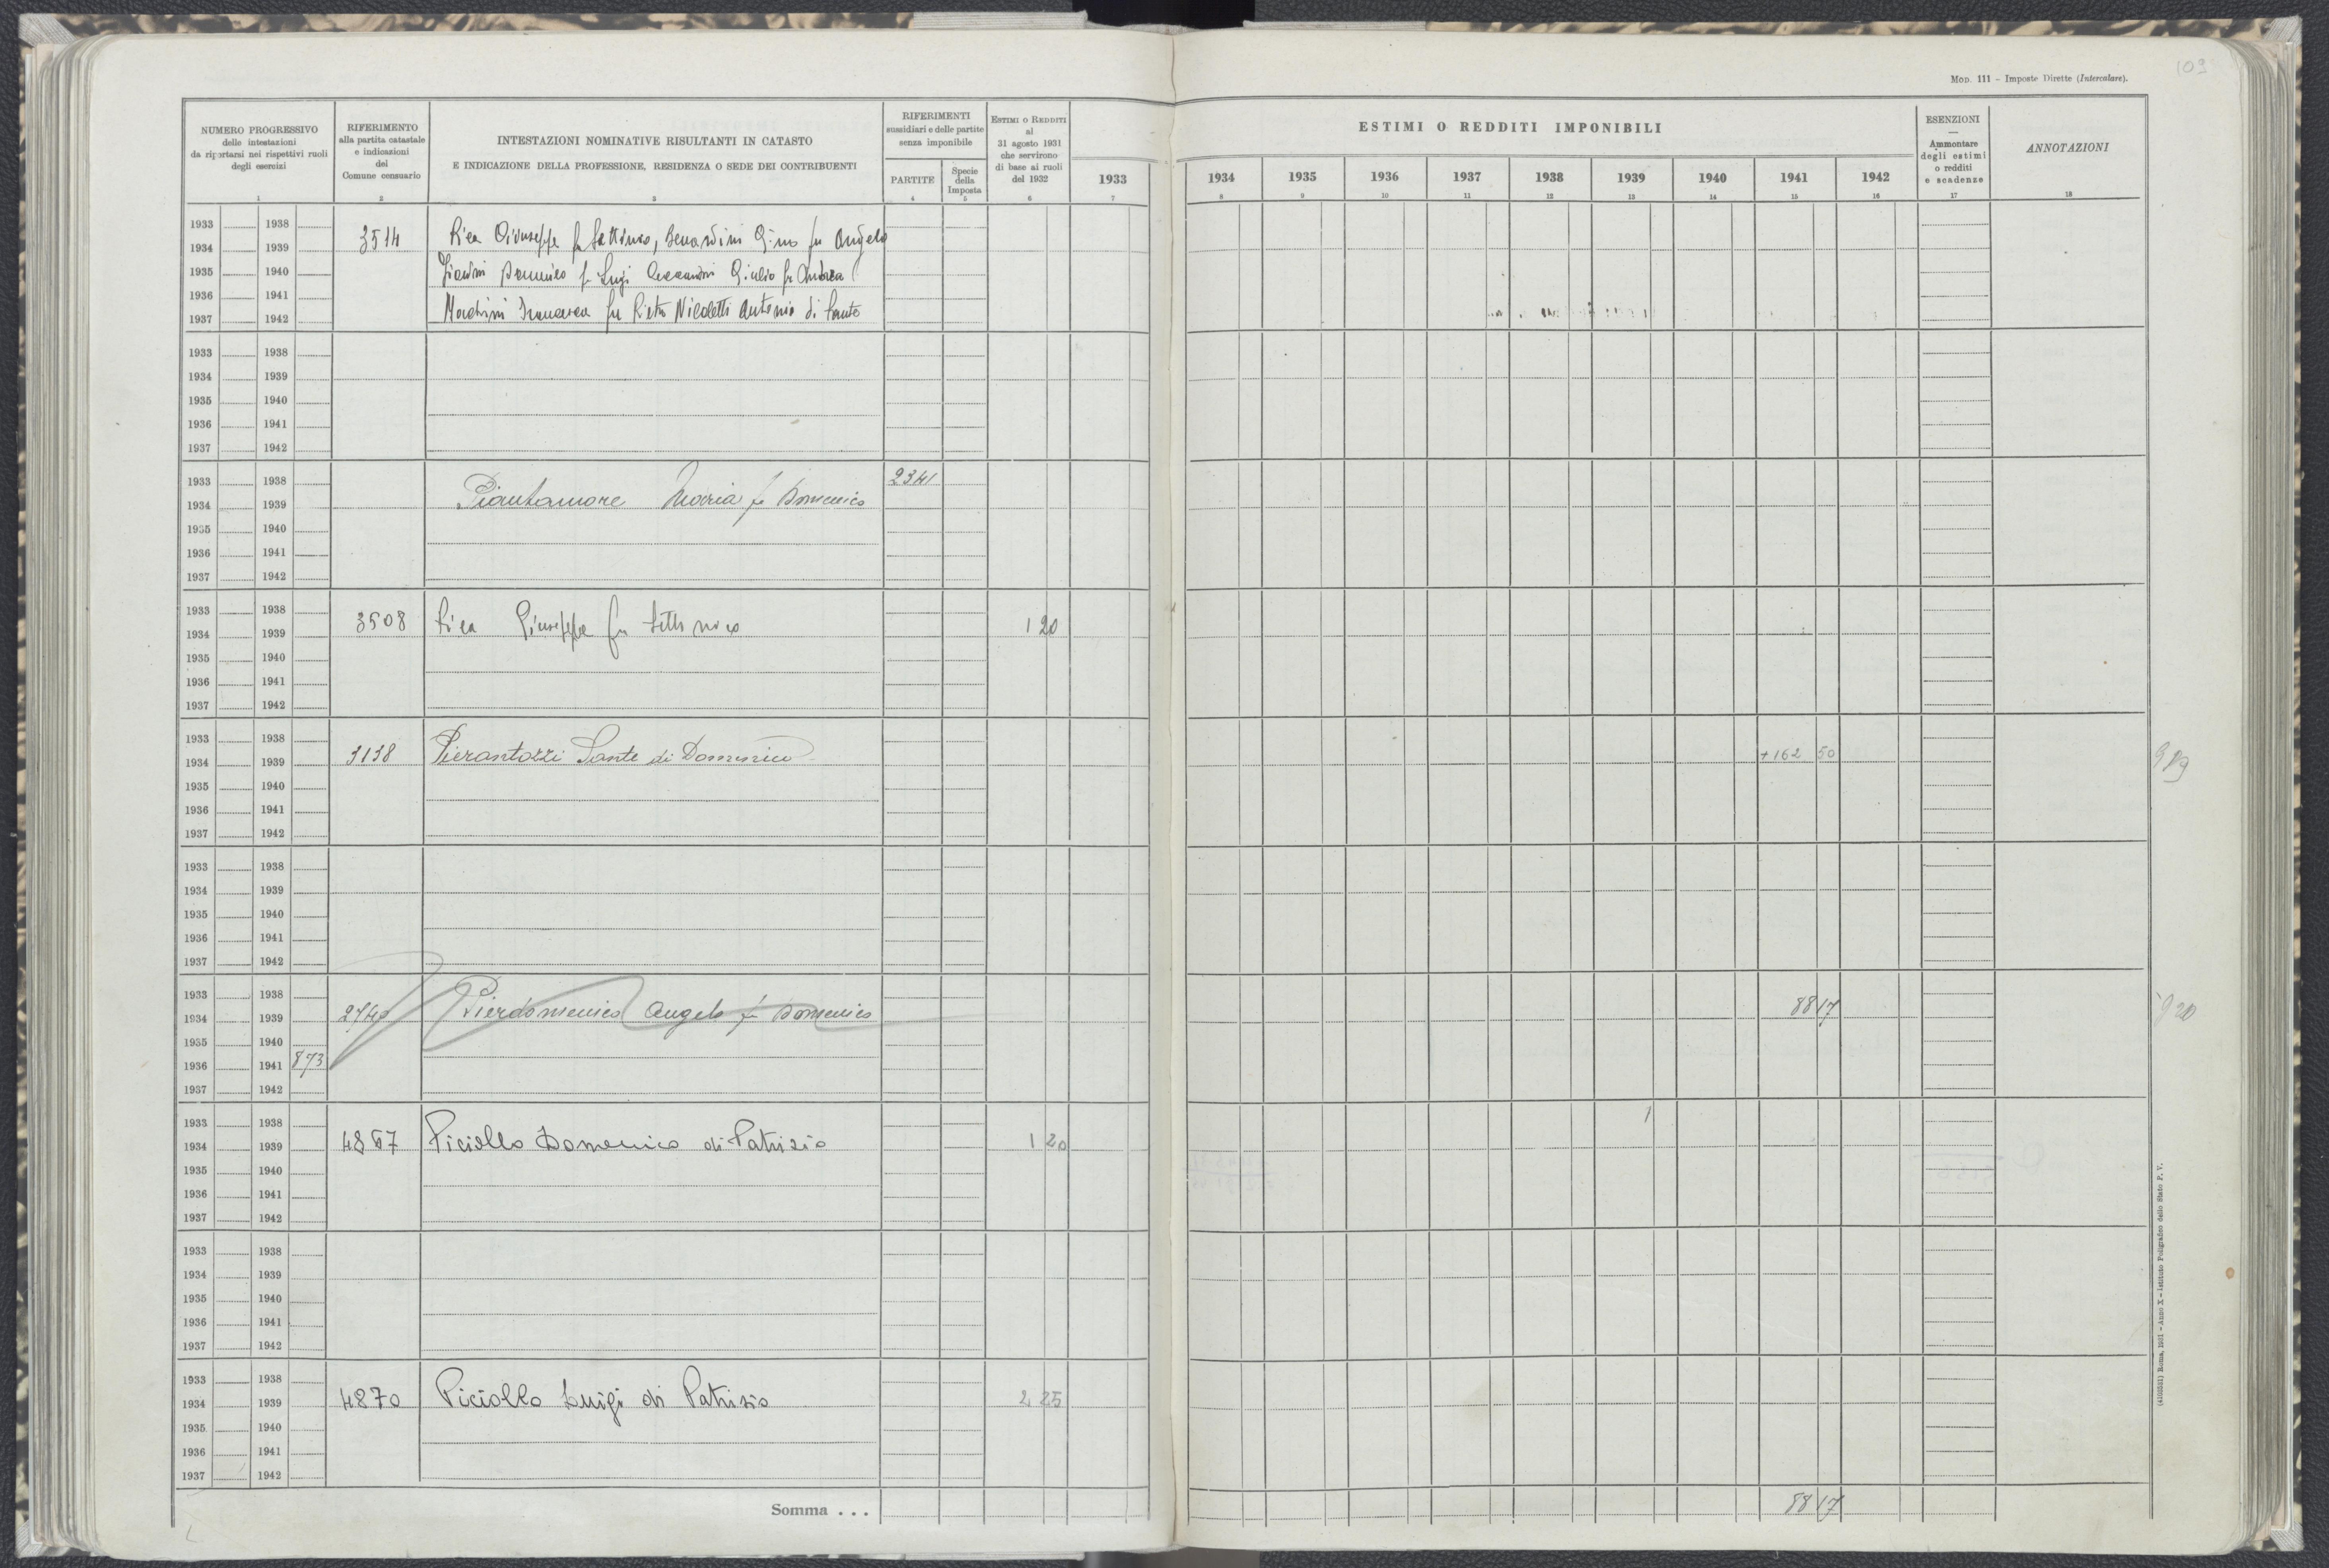 MOD. 111 - Imposte Dirette (Intercalare).
109
NUMERO PROGRESSIVO
delle intestazioni
da riportarsi nei rispettivi ruoli
degli esercizi
RIFERIMENTO
alla partita catastale
e indicazioni
del
Comune censuario
INTESTAZIONI NOMINATIVE RISULTANTI IN CATASTO
E INDICAZIONE DELLA PROFESSIONE, RESIDENZA O SEDE DEI CONTRIBUENTI
RIFERIMENTI
sussidiari e delle partite
senza imponibile
PARTITE
Specie
della
Imposta
ESTIMI O REDDITI
al
31 agosto 1931
che servirono
di base ai ruoli
del 1932
1933
ESTIMI O REDDITI IMPONIBILI
1934 1935 1936 1937 1938 1939 1940 1941 1942
ESENZIONI
—
Ammontare
degli estimi
o redditi
e scadenze
ANNOTAZIONI
1 2 3 4 5 6 7 8 9 10 11 12 13 14 15 16 17 18
1933 1938
1934 1939 3514 Giuseppe fu Settimio, Gino fu Angelo
1935 1940 fu Luigi Giulio fu Andrea
1936 1941 fu Pietro Nicoletti Antonio di Sante
1937 1942
1933 1938
1934 1939
1935 1940
1936 1941
1937 1942
1933 1938 2341
1934 1939 Piantamore Maria fu Domenico
1935 1940
1936 1941
1937 1942
1933 1938
1934 1939 3508 Giuseppe fu Settimio 1 20
1935 1940
1936 1941
1937 1942
1933 1938
1934 1939 3138 Pierantozzi Sante di Domenico +162 50
1935 1940
1936 1941
1937 1942
1933 1938
1934 1939
1935 1940
1936 1941
1937 1942
1933 1938
1934 1939 2740 Pierdomenico Angelo fu Domenico 88 17 920
1935 1940
1936 1941 873
1937 1942
1933 1938 1
1934 1939 4867 Piciollo Domenico di Patrizio 1 20
1935 1940
1936 1941
1937 1942
1933 1938
1934 1939
1935 1940
1936 1941
1937 1942
1933 1938
1934 1939 4870 Piciollo Luigi di Patrizio 2 25
1935 1940
1936 1941
1937 1942
Somma . . . 88 17
(4103551) Roma, 1931 - Anno X - Istituto Poligrafico dello Stato P. V.